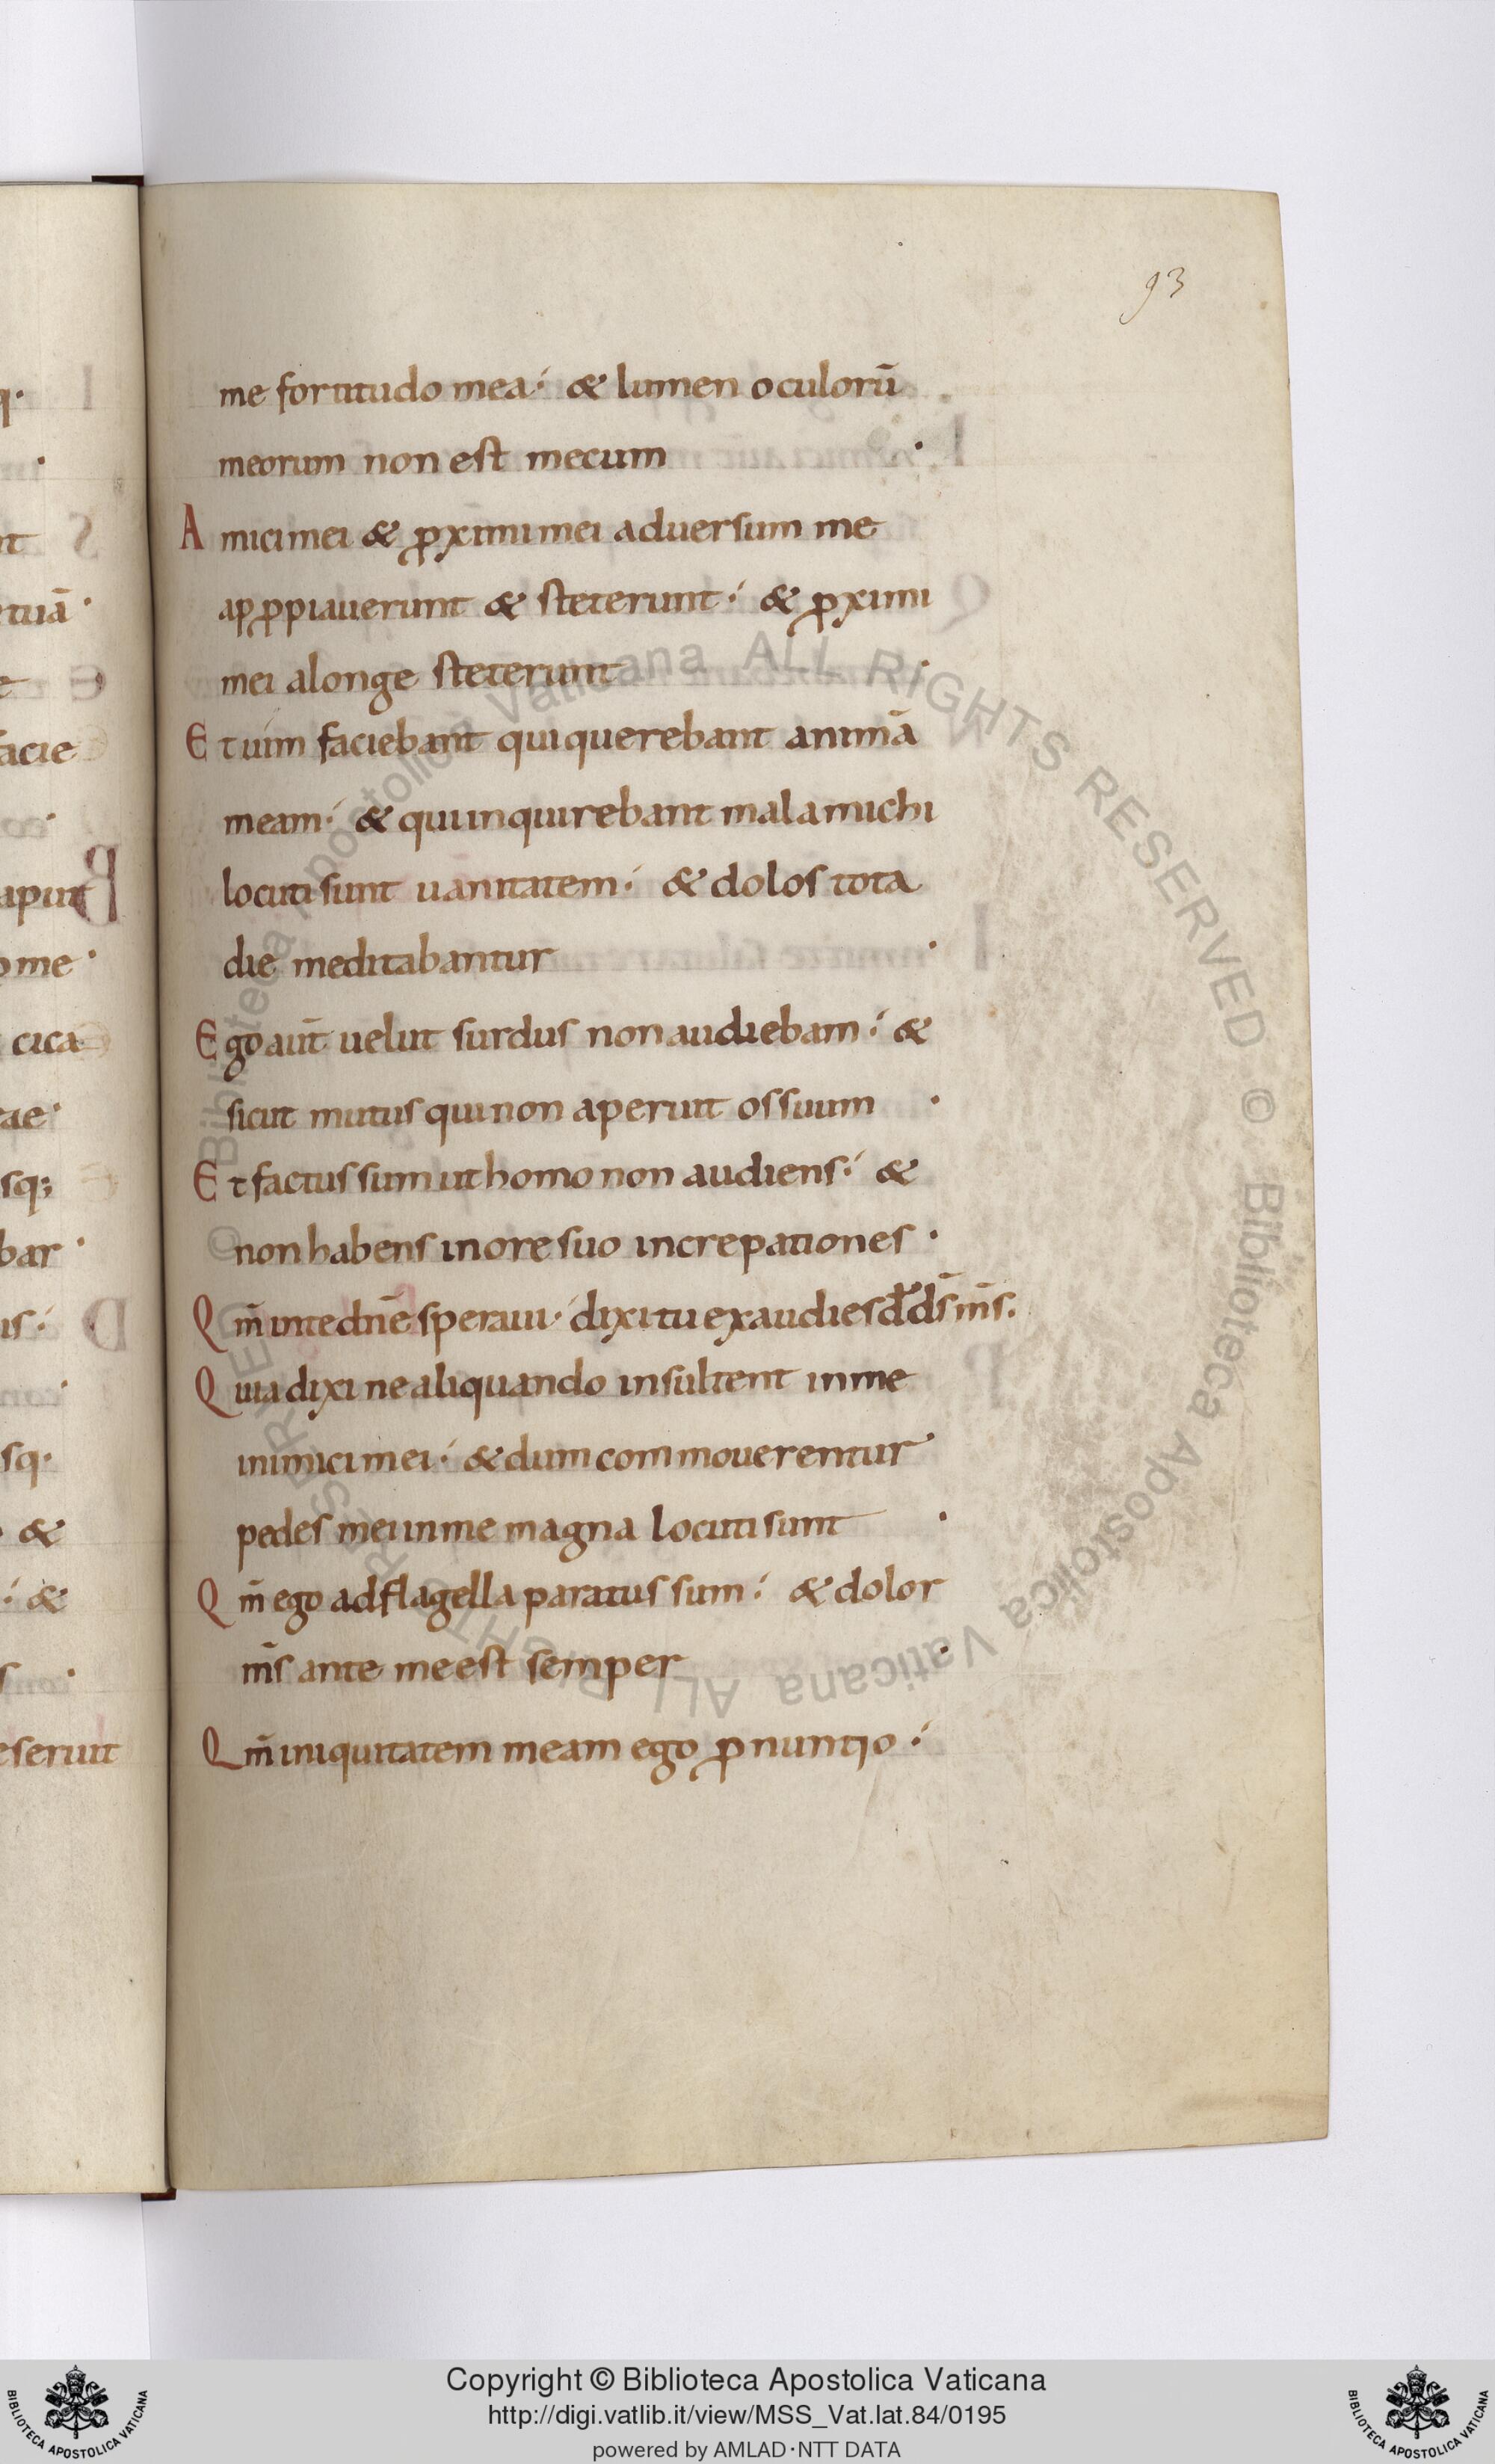 93
me fortitudo mea· & lumen oculorū
meorum non est mecum ·
Amici mei & ꝓximi mei aduersum me
apꝓpiauerunt & steterunt· & ꝓximi
mei alonge steterunt ·
Et uim faciebant qui querebant animā
meam· & qui inquirebant mala michi
locuti sunt uanitatem· & dolos tota
die meditabantur ·
Ego aut̄ uelut surdus non audiebam· &
sicut mutus qui non aperuit os suum ·
Et factus sum ut homo non audiens· &
non habens in ore suo increpationes ·
Qm̄ in te dn̄e speraui· dixi tu exaudies dēds̄ ms̄.
Quia dixi ne aliquando insultent in me
inimici mei· & dum commouerentur
pedes mei in me magna locuti sunt ·
Qm̄ ego ad flagella paratus sum· & dolor
ms̄ ante me est semper ·
Qm̄ iniquitatem meam ego ꝓnuntio·
q·
nt
tuā·
acie
apiunt
ome·
cica
ae·
sq;
bar·
is·
sq·
&
· &
eseruit
© Biblioteca Apostolica Vaticana ALL RIGHTS RESERVED
© Biblioteca Apostolica Vaticana ALL RIGHTS RESERVED
Copyright © Biblioteca Apostolica Vaticana
http://digi.vatlib.it/view/MSS_Vat.lat.84/0195
powered by AMLAD·NTT DATA
BIBLIOTECA APOSTOLICA VATICANA
BIBLIOTECA APOSTOLICA VATICANA